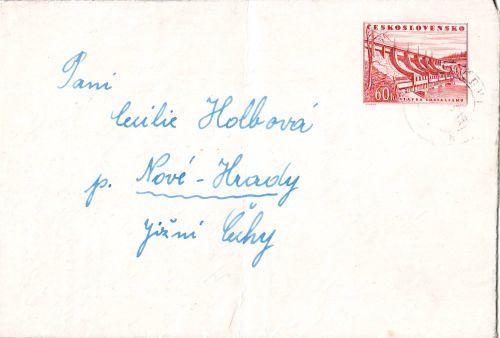 ČESKOSLOVENSKO
60h
Paní
Cecilie Holbová
p. Nové-Hrady
Jižní Čechy